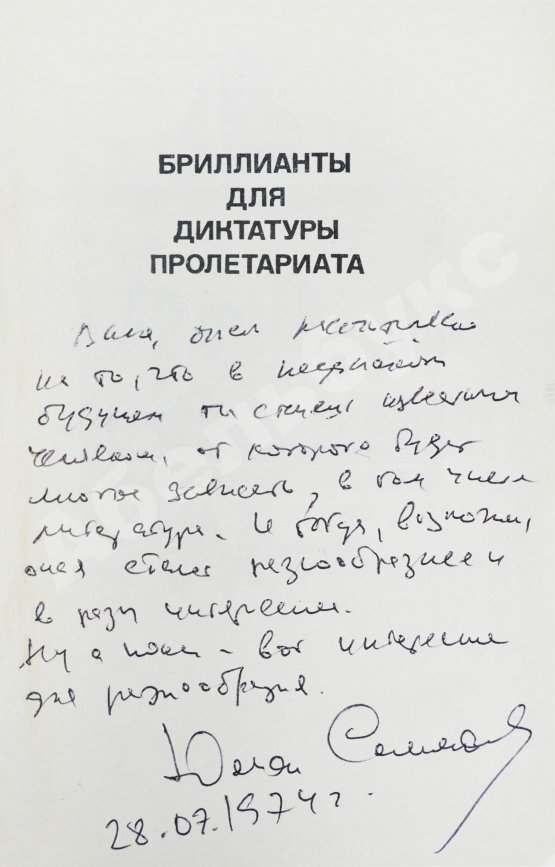 БРИЛЛИАНТЫ
ДЛЯ
ДИКТАТУРЫ
ПРОЛЕТАРИАТА
на то, что в
будущем ты станешь известным
человеком, от которого будет
многое зависеть, в том числе
литература. И тогда, возможно,
она станет разнообразнее и
в разы интереснее.
Ну а пока – вот
для разнообразия.
Юлиан Семенов
28.07.1974 г.